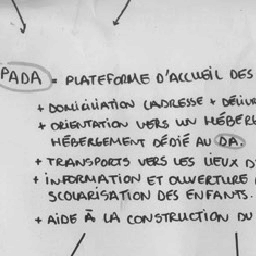 PADA = PLATEFORME D'ACCUEIL DES
+ DOMICILIATION (ADRESSE + DÉLIV
+ ORIENTATION VERS UN HÉBER
HÉBERGEMENT DÉDIÉ AU DA.
+ TRANSPORTS VERS LES LIEUX D
+ INFORMATION ET OUVERTURE
SCOLARISATION DES ENFANTS.
+ AIDE À LA CONSTRUCTION DU